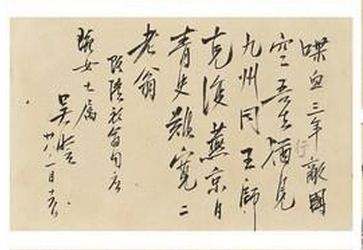 喋血三年敵國
空吾生酒見
九州同王師
克復燕京日
青史難寬二
老翁
陸放翁句應
女士屬
吳